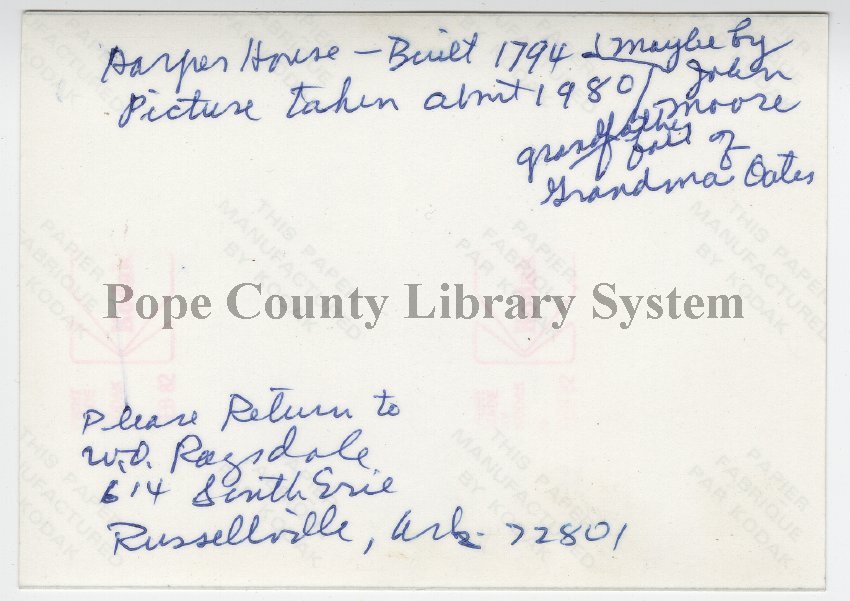 Harper House – Built 1794 & maybe by
John
Picture taken about 1980
Moore
grandfather
of
Grandma Oates
Pope County Library System
Please Return to
W.D. Ragsdale
614 South Erie
Russellville, Ark 72801
THIS PAPER
MANUFACTURED
BY KODAK
PAPIER
FABRIQUE
PAR KODAK